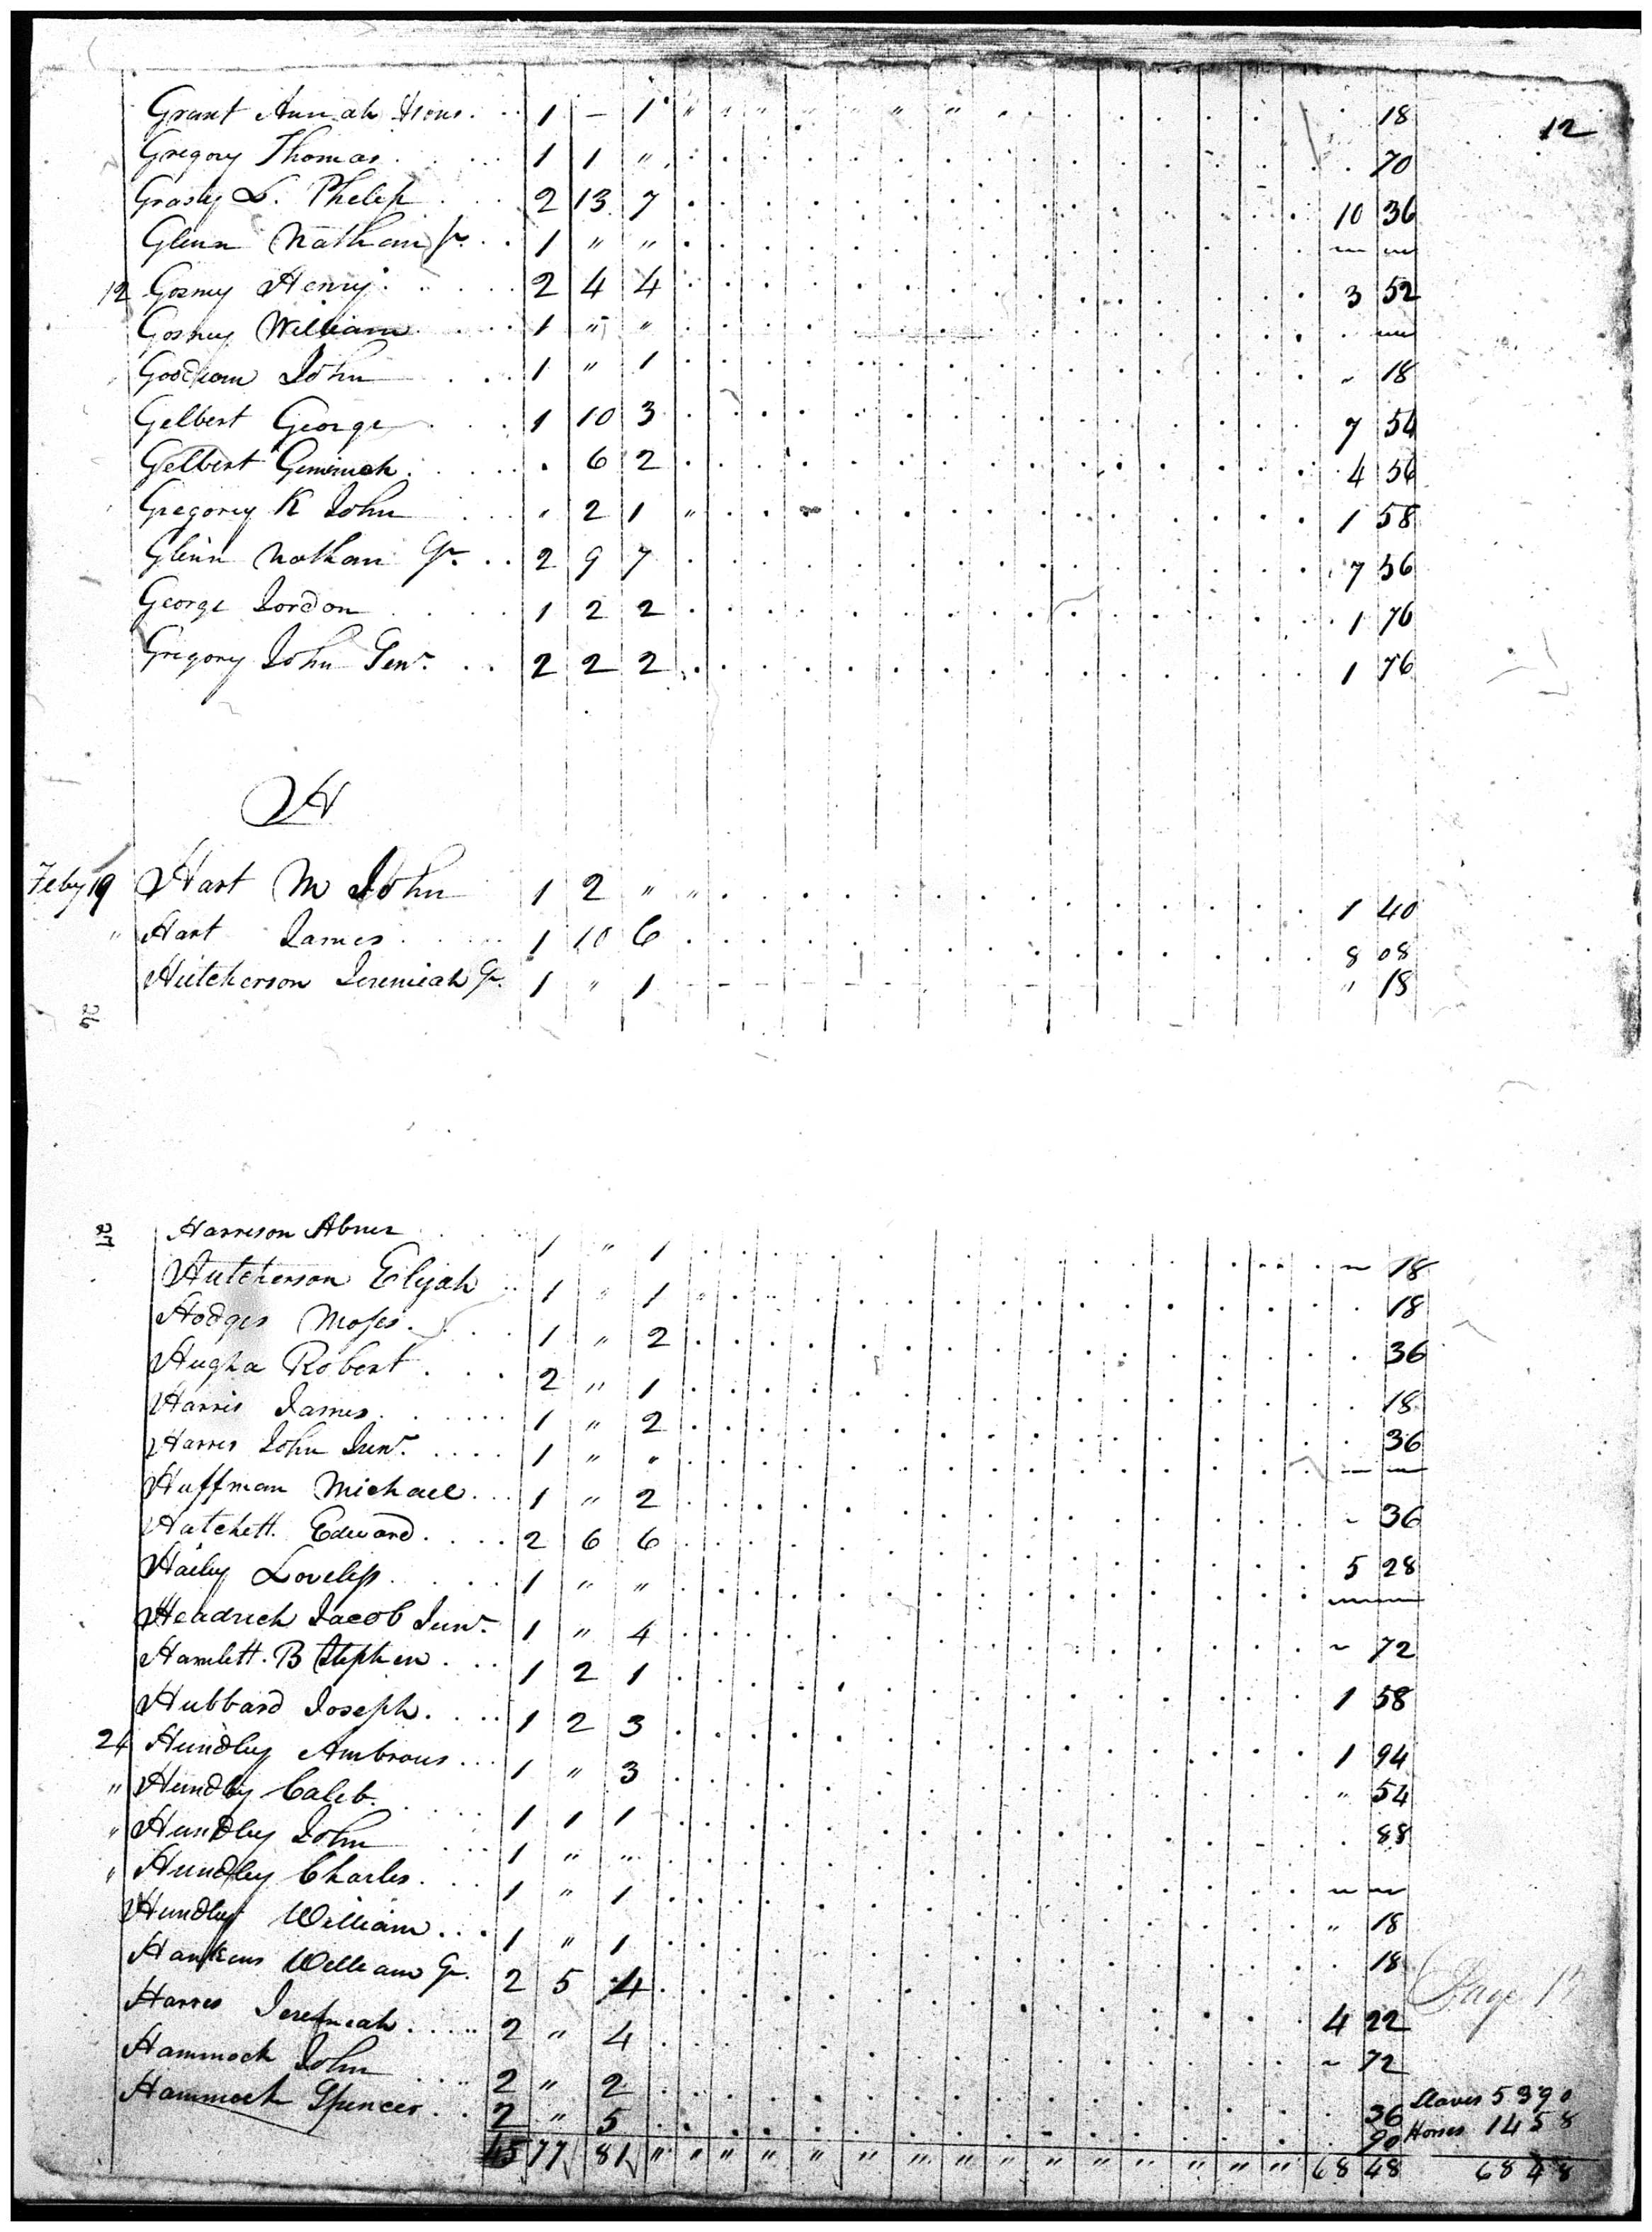 12
Grant Hannah 1 – 1 " " " " " " 18
Gregory Thomas 1 1 " 70
Grasty L. Philip 2 13 7 10 36
Glenn Nathan Jr. 1 " "
12 Gosney Henry 2 4 4 3 52
Gosney William 1 " "
John 1 " 1 18
Gelbert George 1 10 3 7 54
Gelbert 6 2 4 56
Gregory K John 2 1 " 1 58
Glenn Nathan Sr. 2 9 7 7 56
George Jordon 1 2 2 1 76
Gregory John Senr. 2 2 2 1 76
H
Feby 19 Hart M John 1 2 " " 1 40
" Hart James 1 10 6 8 08
Hutcherson Jeremiah Jr. 1 " 1 " 18
26
27 Harrison Abner 1 " 1 18
Hutcherson Elijah 1 " 1 " 18
Hodges Moses 1 " 2 36
Robert 2 " 1 18
Harris James 1 " 2 36
Harris John Junr. 1 " "
Huffman Michael 1 " 2 36
Hatchett Edward 2 6 6 5 28
Hailey Loveless 1 " "
Headrick Jacob Junr. 1 " 4 72
Hamlett B Stephen 1 2 1 1 58
Hubbard Joseph 1 2 3 1 94
24 Hundley Ambrous 1 " 3 " 54
" Hundley Caleb 1 1 1 88
" Hundley John 1 " "
" Hundley Charles 1 " 1 " 18
Hundley William 1 " 1 18
Hankins William Jr. 2 5 4 4 22
Page
Harris Jeremiah 2 " 4 72
Hammock John 2 " 2 36 Slaves 5390
Hammock Spencer 2 " 5 90 Horses 1458
45 77 81 " " " " " " " " " " " " " " " 68 48 6848